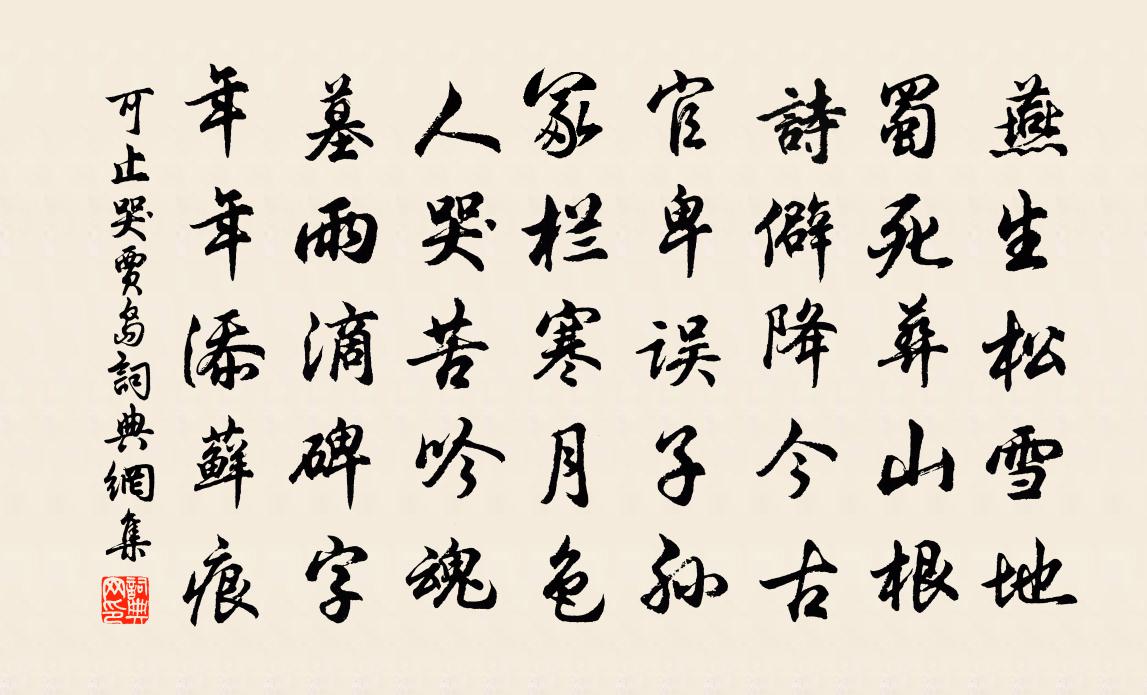 燕生松雪地
蜀死葬山根
詩僻降今古
官卑误子孙
冢栏寒月色
人哭苦吟魂
墓雨滴碑字
年年添蘚痕
可止哭賈島詞典網集
詞典网印